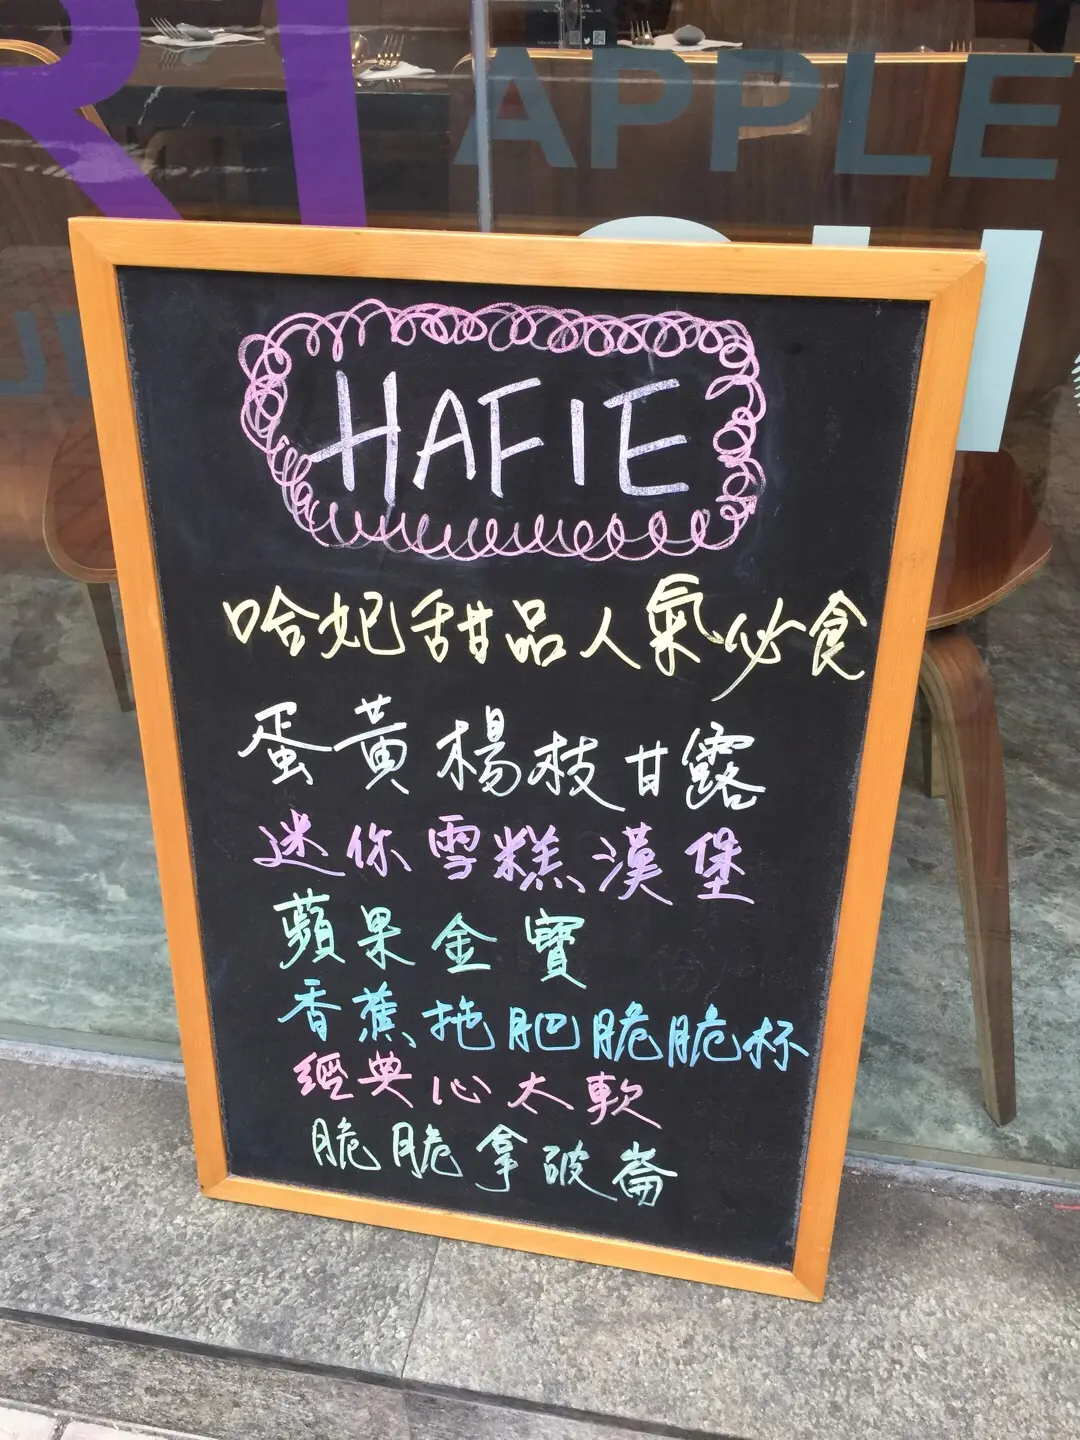 RI
APPLE
HAFIE
哈妃甜品人氣必食
蛋黃楊枝甘露
迷你雪糕漢堡
蘋果金寶
香蕉拖肥脆脆杯
經典心太軟
脆脆拿破崙